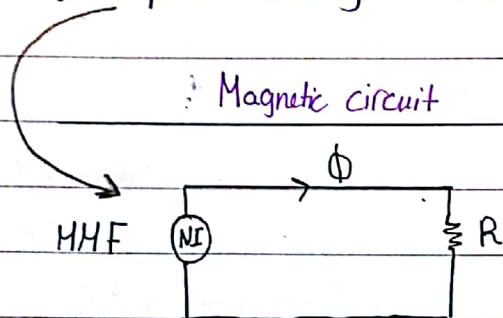 Magnetic circuit
Φ
MMF NI R